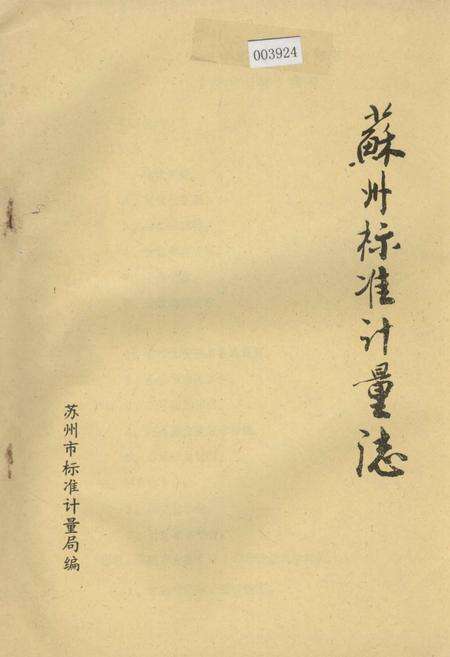 003924
蘇州标准计量誌
苏州市标准计量局编